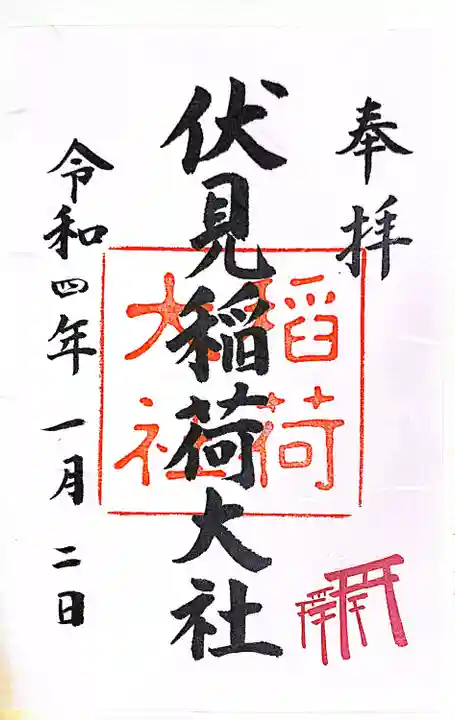 奉拝
伏見稲荷大社
稲荷
大社
令和四年 一月 二日